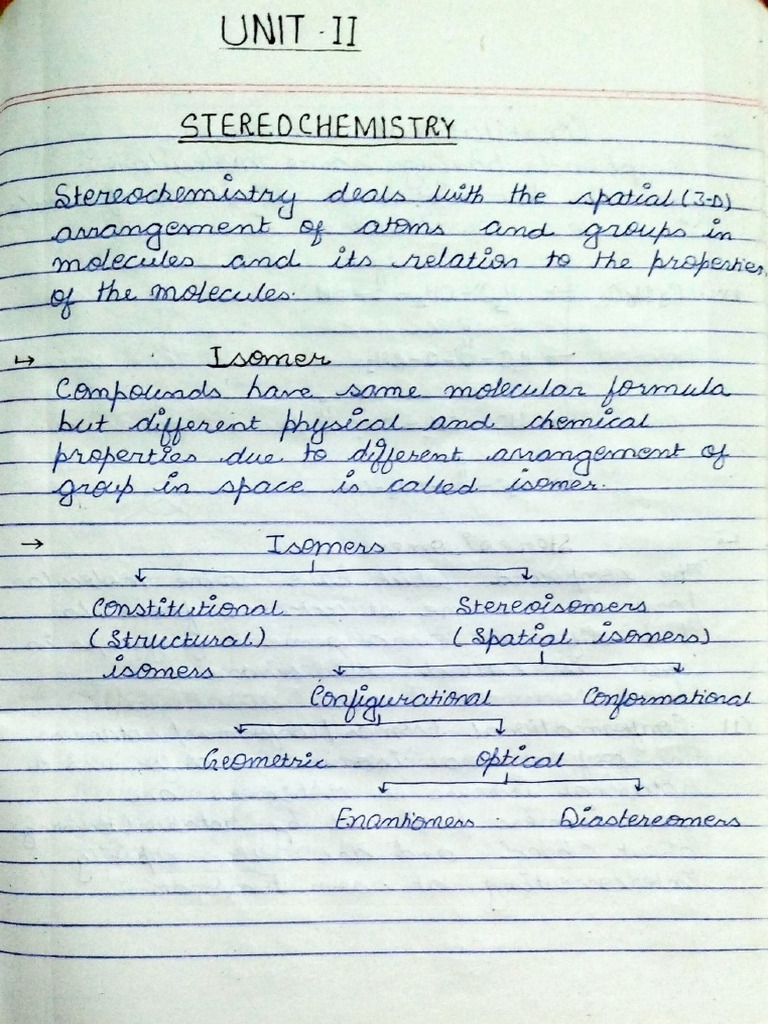 UNIT - II
STEREOCHEMISTRY
Stereochemistry deals with the spatial (3-D)
arrangement of atoms and groups in
molecules and its relation to the properties
of the molecules.
↦ Isomer
Compounds have same molecular formula
but different physical and chemical
properties due to different arrangement of
group in space is called isomer.
→ Isomers
Constitutional Stereoisomers
(Structural) (Spatial isomers)
isomers
Configurational Conformational
Geometric Optical
Enantiomers Diastereomers